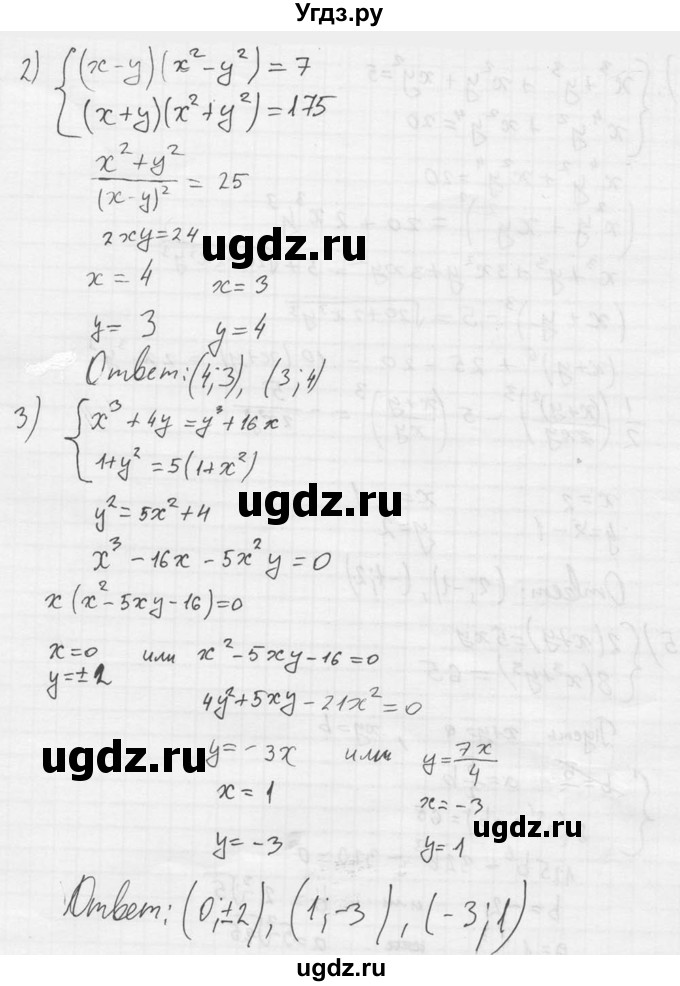 Угдз.ру
2) { (x-y)(x²-y²) = 7
(x+y)(x²+y²) = 175
(x²+y²)/(x-y)² = 25
2xy=24
ugdz.ru
x = 4 x = 3
y = 3 y = 4
Ответ: (4;3), (3;4)
3) { x³+4y = y³+16x
1+y² = 5(1+x²)
ugdz.ru
y² = 5x²+4
x³-16x-5x²y=0
x(x²-5xy-16)=0
x=0 или x²-5xy-16=0
y=±2
4y²+5xy-21x²=0
ugdz.ru
y=-3x или y=7x/4
x=1 x=-3
ugdz.ru
y=-3 y=1
Ответ: (0;±2), (1;-3), (-3;1)
ugdz.ru